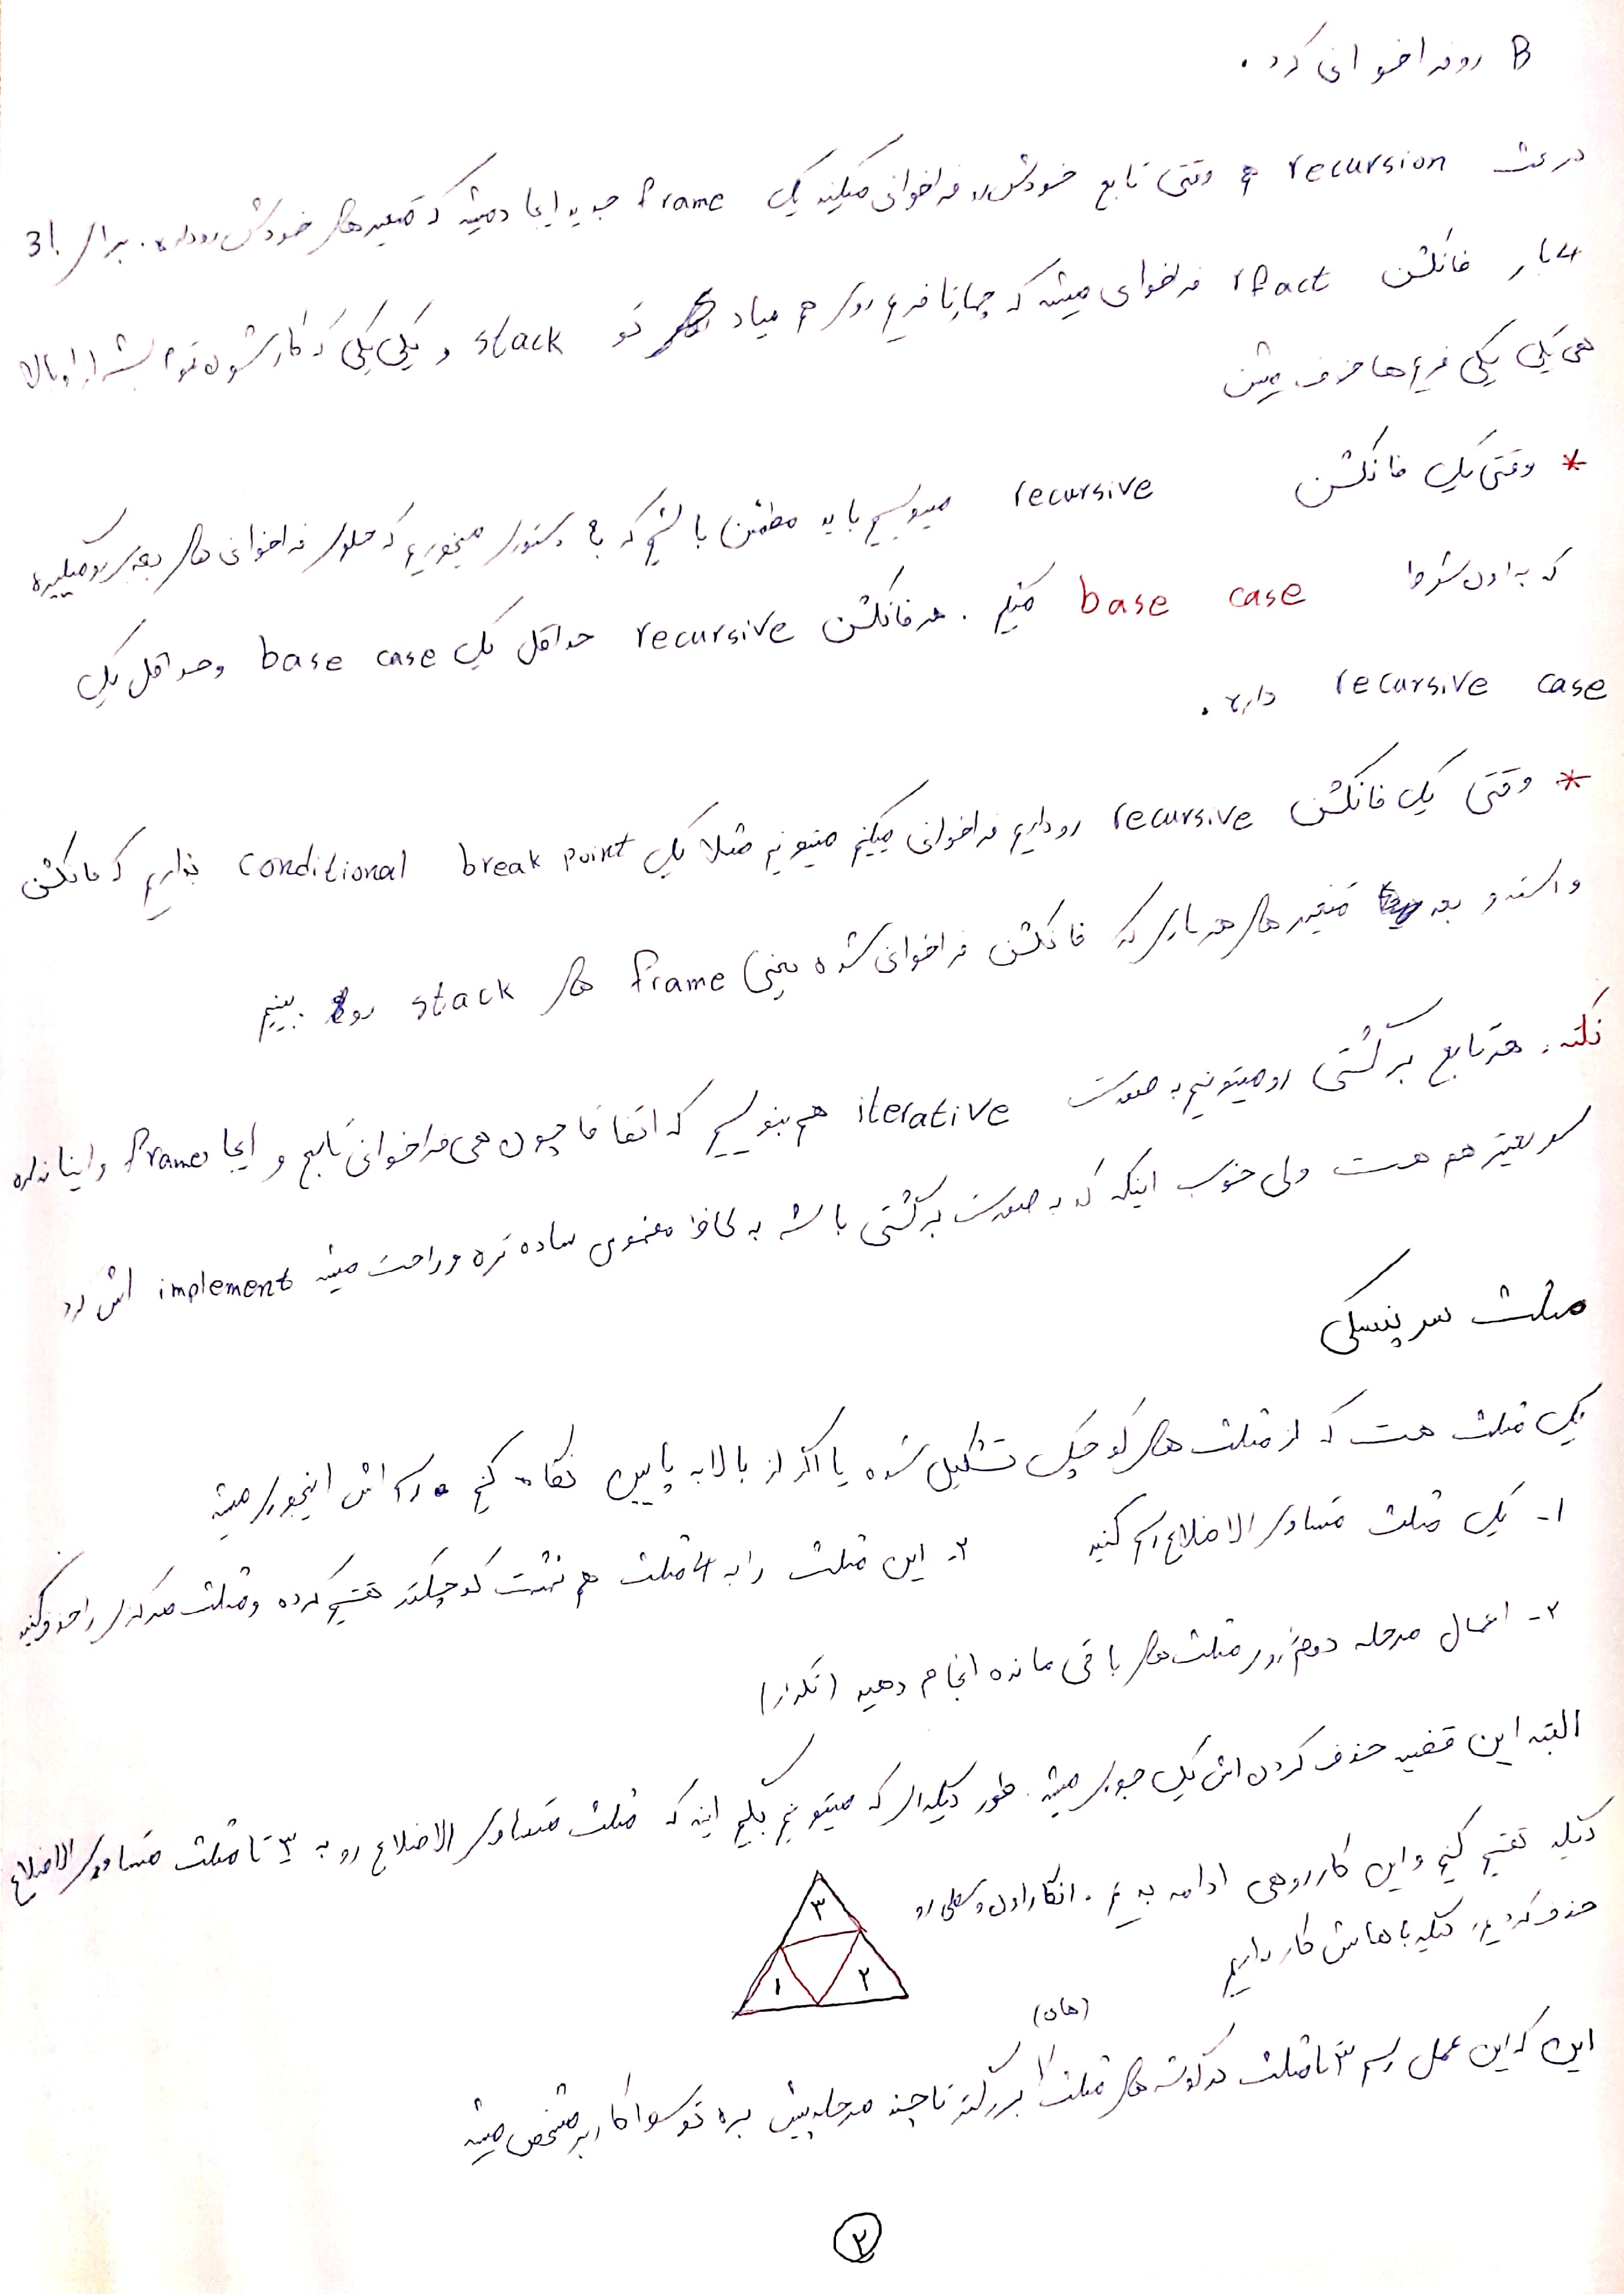 B رو فراخوانی کرد.
در بحث recursion وقتی تابع خودش رو فراخوانی میکنه یک frame جدید ایجاد میشه که متغیرهای خودش رو داره. برای 3!
4 بار فانکشن rfact فراخوانی میشه که چهارتا فریم روی هم میاد تو stack و یکی یکی که کارشون تموم بشه از بالا
هی یکی یکی فریم ها حذف میشن
* وقتی یک فانکشن recursive مینویسیم باید مطمئن باشیم که به دستوری میخوریم که جلوی فراخوانی های بعدی رو میگیره
که به اون شرط base case میگیم. هر فانکشن recursive حداقل یک base case و حداقل یک
recursive case داره.
* وقتی یک فانکشن recursive رو داریم فراخوانی میکنیم میتونیم مثلا یک conditional break point بذاریم که فانکشن
وایسته و بعد متغیر های هر باری که فانکشن فراخوانی شده یعنی frame های stack رو ببینیم
نکته: هر تابع برگشتی رو میتونیم به صورت iterative هم بنویسیم که اتفاقا چون هی فراخوانی تابع و ایجاد frame و اینا نداره
سریعتر هم هست ولی خوب اینکه که به صورت برگشتی باشه به لحاظ مفهومی ساده تره و راحت میشه implement اش کرد
مثلث سرپنسکی
یک مثلث هست که از مثلث های کوچیک تشکیل شده یا اگر از بالا به پایین نگاه کنیم رسم اش اینجوری میشه
۱- یک مثلث متساوی الاضلاع رسم کنید ۲- این مثلث را به 4 مثلث هم نهشت کوچکتر تقسیم کرده و مثلث مرکزی را حذف کنید
۳- اعمال مرحله دوم روی مثلث های باقی مانده انجام دهید (تکرار)
البته این قضیه حذف کردن اش یک جوری میشه. طور دیگه ای که میتونیم بگیم اینه که مثلث متساوی الاضلاع رو به ۳ تا مثلث متساوی الاضلاع
دیگه تقسیم کنیم و این کار رو هی ادامه بدیم. انگار اون وسطی رو
حذف کردیم باهاش کار داریم
۳
۱ ۲
(های)
این که این عمل رسم ۳ تا مثلث در گوشه های مثلث بزرگتر تا چند مرحله پیش بره توسط کاربر مشخص میشه
۲